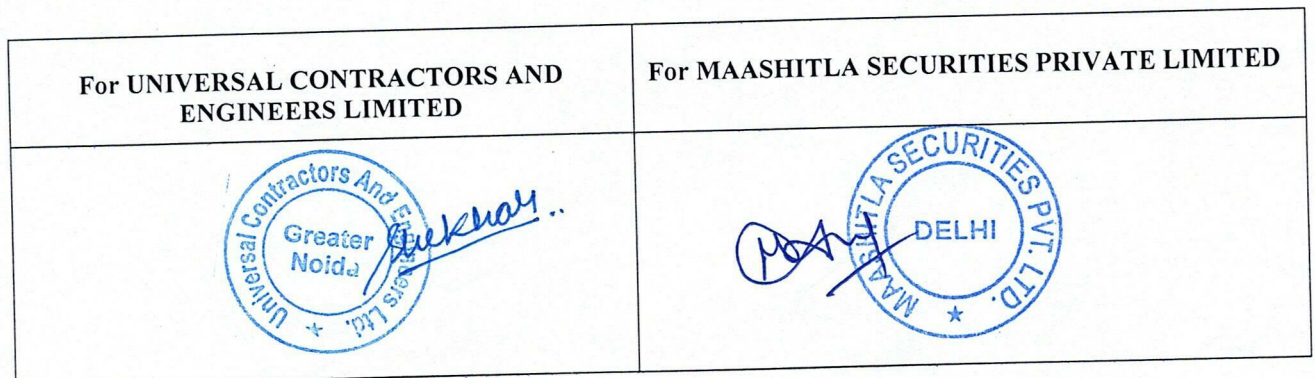 For UNIVERSAL CONTRACTORS AND
ENGINEERS LIMITED
For MAASHITLA SECURITIES PRIVATE LIMITED
Universal Contractors And Engineers Ltd.
Greater
Noida
MAASHITLA SECURITIES PVT. LTD.
DELHI